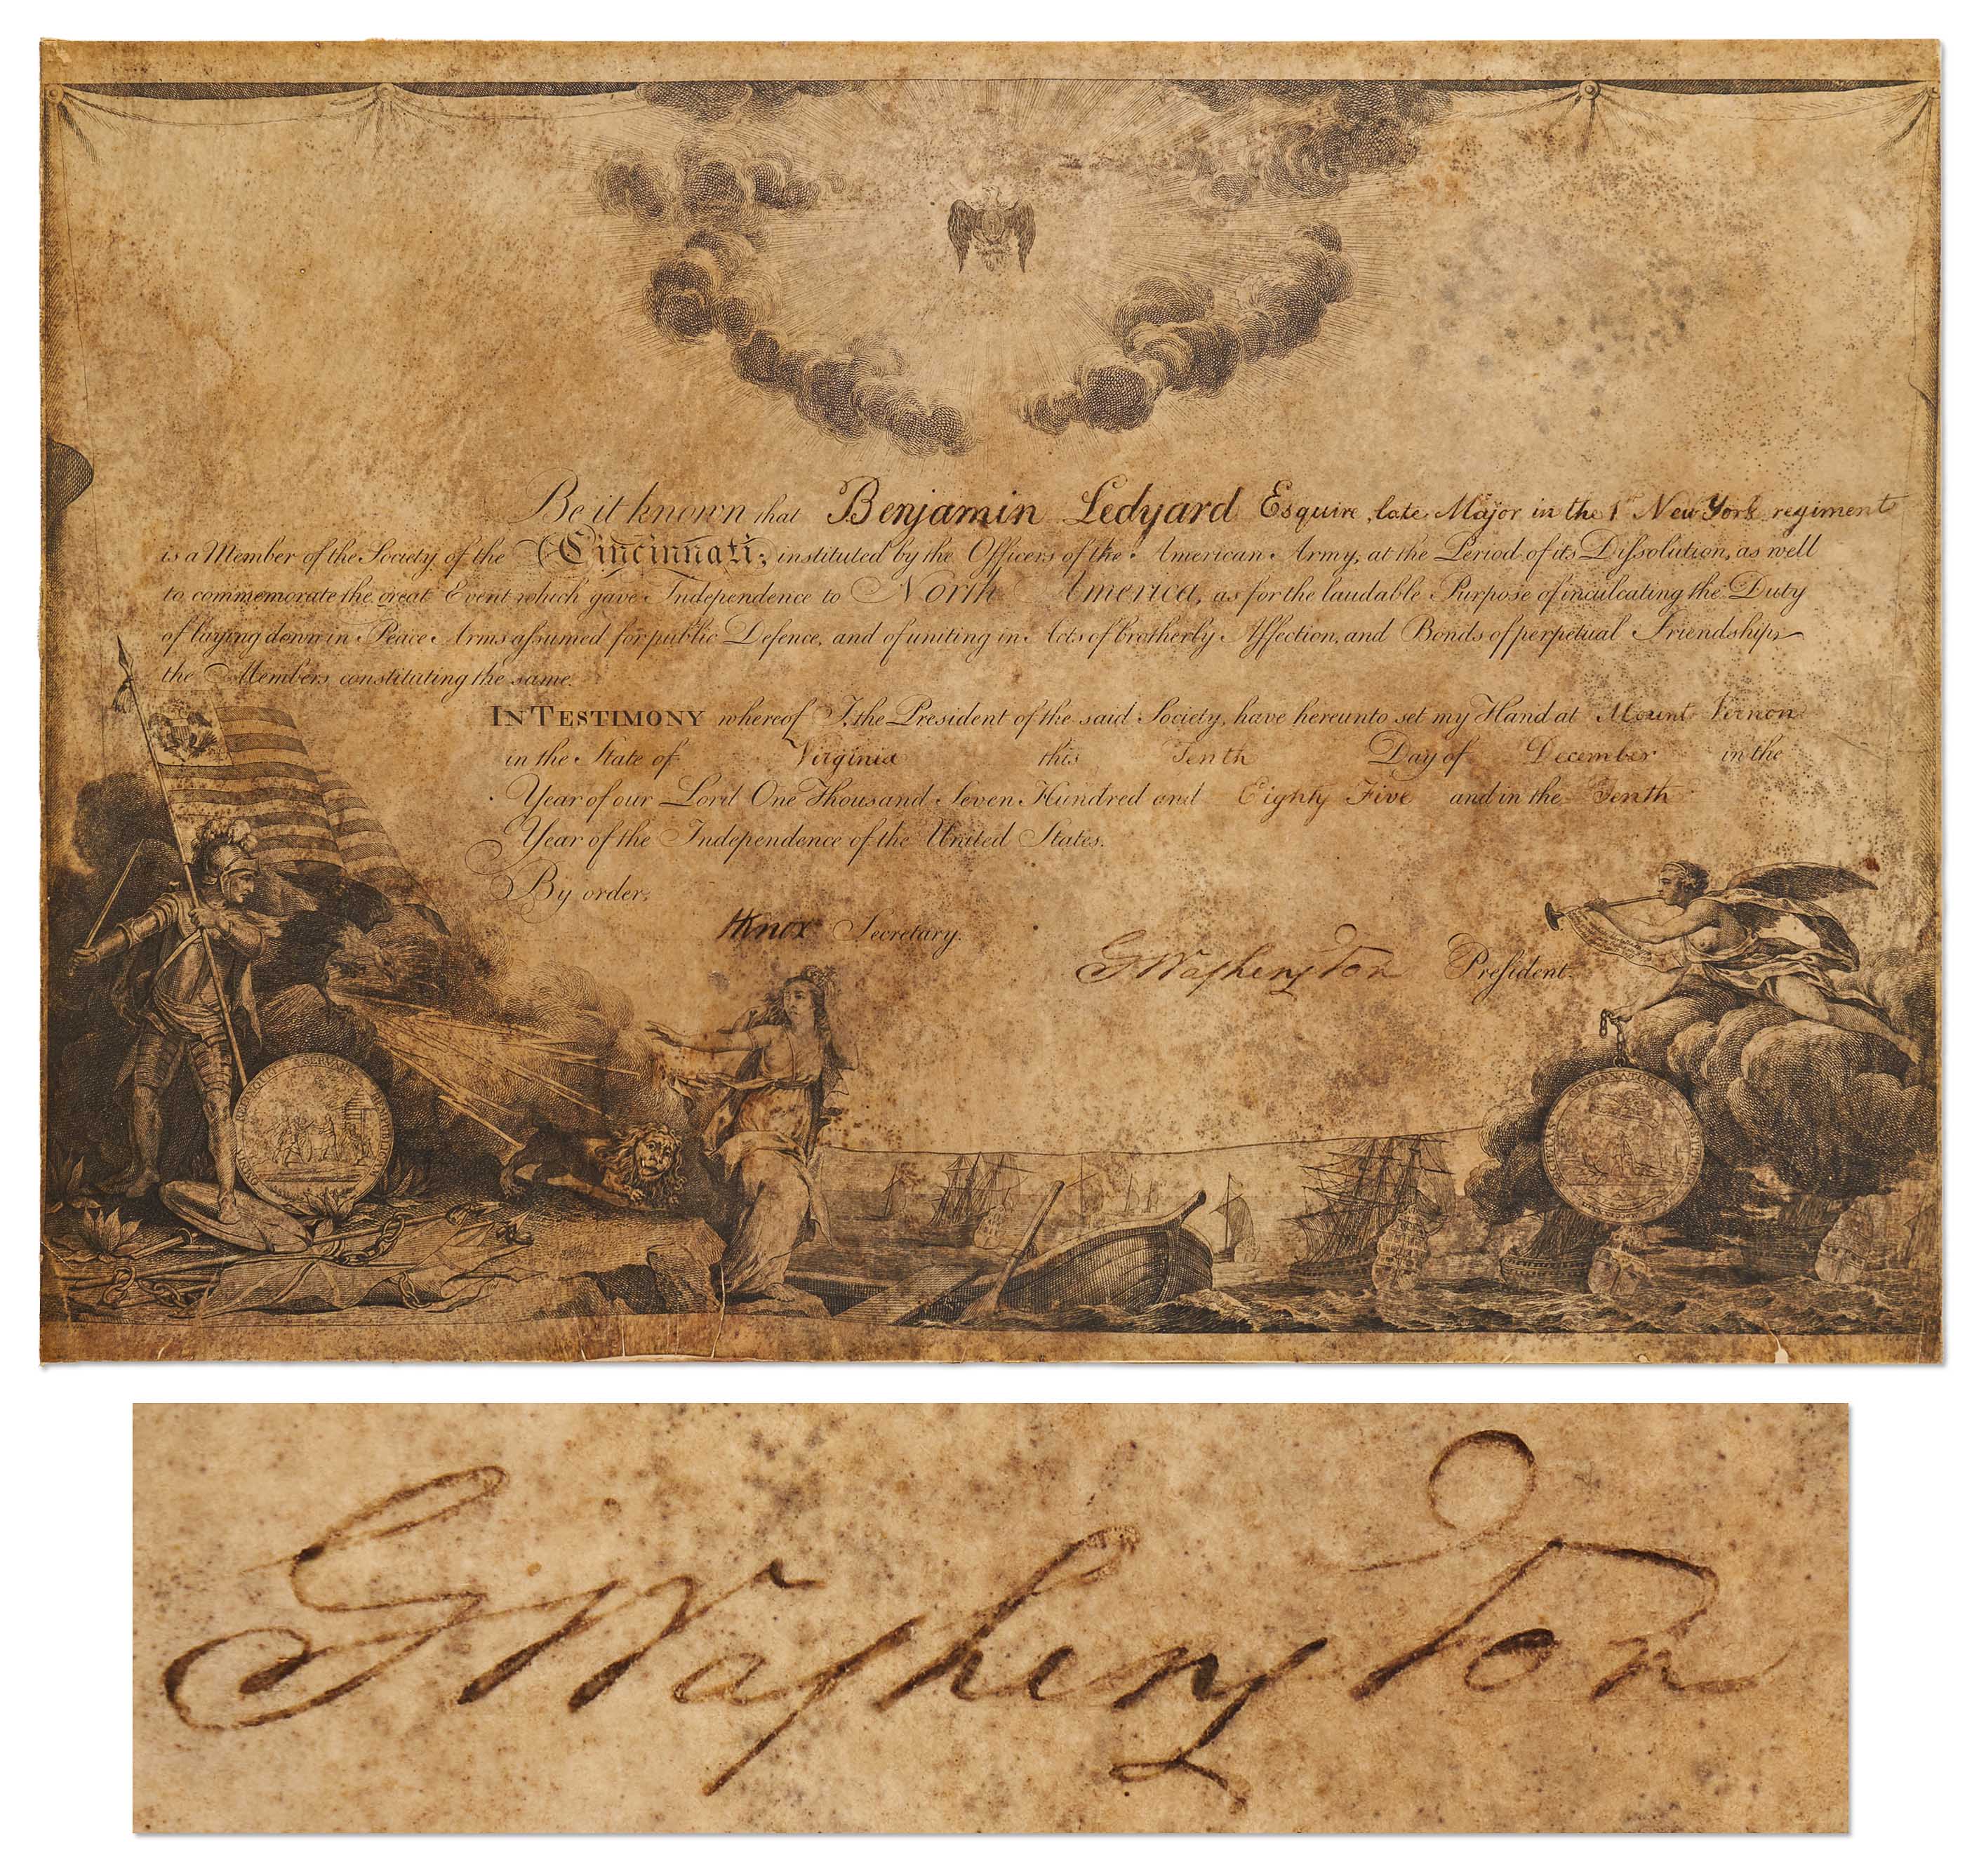 Be it known that Benjamin Ledyard Esquire, late Major in the 1st New York regiment
is a Member of the Society of the Cincinnati; instituted by the Officers of the American Army, at the Period of its Dissolution, as well
to commemorate the great Event which gave Independence to North America, as for the laudable Purpose of inculcating the Duty
of laying down in Peace Arms assumed for public Defence, and of uniting in Acts of brotherly Affection, and Bonds of perpetual Friendship,
the Members constituting the same.
IN TESTIMONY whereof I, the President of the said Society, have hereunto set my Hand at Mount Vernon
in the State of Virginia this Tenth Day of December in the
Year of our Lord One Thousand Seven Hundred and Eighty Five and in the Tenth
Year of the Independence of the United States.
By order,
HKnox Secretary.
GWashington President.
SERVARE
GWashington